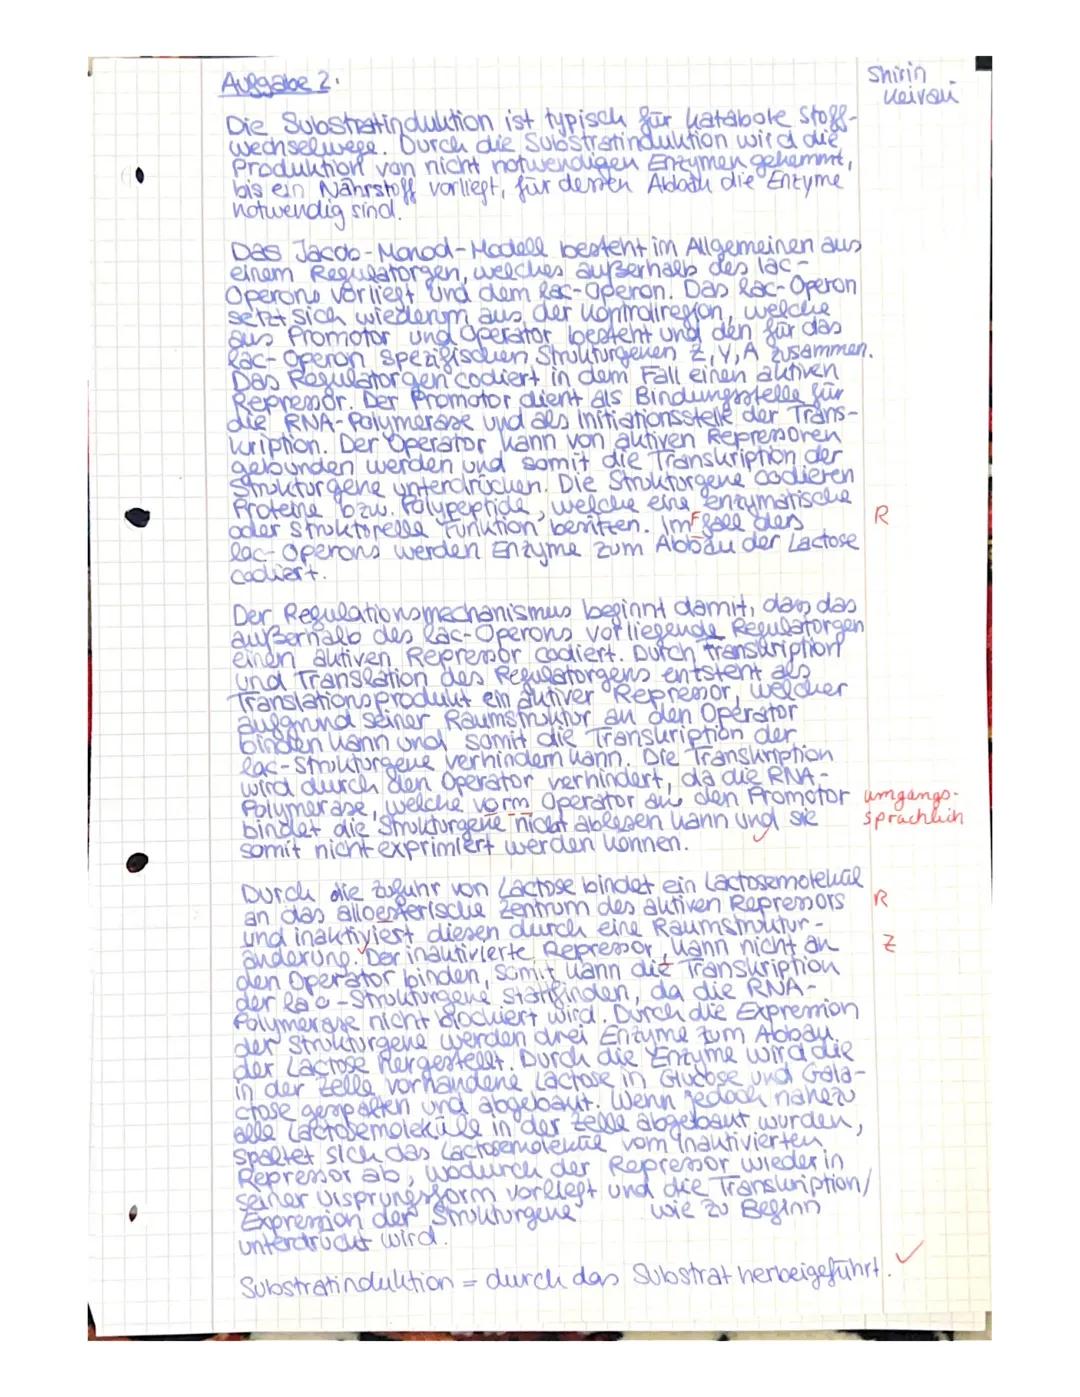 Aufgabe 2:
Shirin
Die Substratinduktion ist typisch für katabole Stoff-
wechselwege. Durch die Substratinduktion wird die
Produktion von nicht notwendigen Enzymen gehemmt,
bis ein Nährstoff vorliegt, für dessen Abbau die Enzyme
notwendig sind.
Das Jacob-Monod-Modell besteht im Allgemeinen aus
einem Regulatorgen, welches außerhalb des lac-
Operons vorliegt und dem lac-Operon. Das lac-Operon
setzt sich wiederum aus der Kontrollregion, welche
aus Promotor und Operator besteht und den für das
lac-Operon spezifischen Strukturgenen Z, Y, A zusammen.
Das Regulatorgen codiert in dem Fall einen aktiven
Repressor. Der Promotor dient als Bindungsstelle für
die RNA-Polymerase und als Initiationsstelle der Trans-
kription. Der Operator kann von aktiven Repressoren
gebunden werden und somit die Transkription der
Strukturgene unterdrücken. Die Strukturgene codieren
Proteine bzw. Polypeptide, welche eine enzymatische
oder strukturelle Funktion besitzen. Im Fall des
R
lac-Operons werden Enzyme zum Abbau der Lactose
codiert.
Der Regulationsmechanismus beginnt damit, dass das
außerhalb des lac-Operons vorliegende Regulatorgen
einen aktiven Repressor codiert. Durch Transkription
und Translation des Regulatorgens entsteht als
Translationsprodukt ein aktiver Repressor, welcher
aufgrund seiner Raumstruktur an den Operator
binden kann und somit die Transkription der
lac-Strukturgene verhindern kann. Die Transkription
wird durch den Operator verhindert, da die RNA-
Polymerase, welche vorm Operator an den Promotor
umgangs-
sprachlich
bindet die Strukturgene nicht ablesen kann und sie
somit nicht exprimiert werden können.
Durch die Zufuhr von Lactose bindet ein Lactosemolekül
an das alloesterische Zentrum des aktiven Repressors
R
und inaktiviert diesen durch eine Raumstruktur-
änderung. Der inaktivierte Repressor, kann nicht an
Z
den Operator binden, somit kann die Transkription
der lac-Strukturgene stattfinden, da die RNA-
Polymerase nicht blockiert wird. Durch die Expression
der Strukturgene werden drei Enzyme zum Abbau
der Lactose hergestellt. Durch die Enzyme wird die
in der Zelle vorhandene Lactose in Glucose und Gala-
ctose gespalten und abgebaut. Wenn jedoch nahezu
alle Lactosemoleküle in der Zelle abgebaut wurden,
spaltet sich das Lactosemolekül vom inaktivierten
Repressor ab, wodurch der Repressor wieder in
seiner Ursprungsform vorliegt und die Transkription/
Expression der Strukturgene wie zu Beginn
unterdrückt wird.
Substratinduktion = durch das Substrat herbeigeführt.